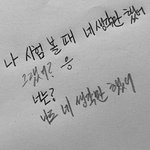 나 시험 볼 때 네 생각만 했어
그랬어? 응
너는?
나도 네 생각만 했어